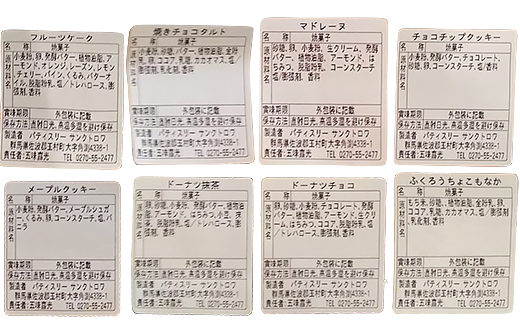 フルーツケーキ
名 称 焼菓子
原材料名 小麦粉、卵、発酵バター、植物油脂、ア
ーモンド、オレンジ、レーズン、レモン
チェリー、パイン、くるみ、バターオ
イル、脱脂粉乳、塩/トレハロース、膨
張剤、香料
賞味期限 外包装に記載
保存方法 直射日光、高温多湿を避け保存
製造者 パティスリー サンクトロワ
群馬県佐波郡玉村町大字角渕4338-1
責任者:五味露光 TEL 0270-55-2477
焼きチョコタルト
名 称 焼菓子
賞味期限 外包装に記載
保存方法 直射日光、高温多湿を避け保存
製造者 パティスリー サンクトロワ
群馬県佐波郡玉村町大字角渕4338-1
責任者:五味露光 TEL 0270-55-2477
マドレーヌ
名 称 焼菓子
原材料名 砂糖、卵、小麦粉、生クリーム、発酵
バター、植物油脂、アーモンド、は
ちみつ、脱脂粉乳、コーンスターチ
、塩/膨張剤、香料
賞味期限 外包装に記載
保存方法 直射日光、高温多湿を避け保存
製造者 パティスリー サンクトロワ
群馬県佐波郡玉村町大字角渕4338-1
責任者:五味露光 TEL 0270-55-2477
チョコチップクッキー
名 称 焼菓子
原材料名 小麦粉、発酵バター、チョコレート、
砂糖、卵、コーンスターチ、塩/香料
賞味期限 外包装に記載
保存方法 直射日光、高温多湿を避け保存
製造者 パティスリー サンクトロワ
群馬県佐波郡玉村町大字角渕4338-1
責任者:五味露光 TEL 0270-55-2477
メープルクッキー
名 称 焼菓子
原材料名 小麦粉、発酵バター、メープルシュガ
ー、くるみ、卵、コーンスターチ、塩、バ
ニラ
賞味期限 外包装に記載
保存方法 直射日光、高温多湿を避け保存
製造者 パティスリー サンクトロワ
群馬県佐波郡玉村町大字角渕4338-1
責任者:五味露光 TEL 0270-55-2477
ドーナツ抹茶
名 称 焼菓子
原材料名 卵、砂糖、小麦粉、発酵バター、植物
油脂、アーモンド、はちみつ、小豆、抹
茶、脱脂粉乳、塩/トレハロース、膨
張剤、香料
賞味期限 外包装に記載
保存方法 直射日光、高温多湿を避け保存
製造者 パティスリー サンクトロワ
群馬県佐波郡玉村町大字角渕4338-1
責任者:五味露光 TEL 0270-55-2477
ドーナツチョコ
名 称 焼菓子
原材料名 卵、砂糖、小麦粉、チョコレート、発酵
バター、植物油脂、アーモンド、生ク
リーム、はちみつ、ココア、脱脂粉乳、塩
/トレハロース、膨張剤、香料
賞味期限 外包装に記載
保存方法 直射日光、高温多湿を避け保存
製造者 パティスリー サンクトロワ
群馬県佐波郡玉村町大字角渕4338-1
責任者:五味露光 TEL 0270-55-2477
ふくろうちょこもなか
名 称 焼菓子
原材料名 もち米、砂糖、植物油脂、全粉乳、卵、
ココア、乳糖、カカオマス、塩/膨張剤、
乳化剤、香料
賞味期限 外包装に記載
保存方法 直射日光、高温多湿を避け保存
製造者 パティスリー サンクトロワ
群馬県佐波郡玉村町大字角渕4338-1
責任者:五味露光 TEL 0270-55-2477